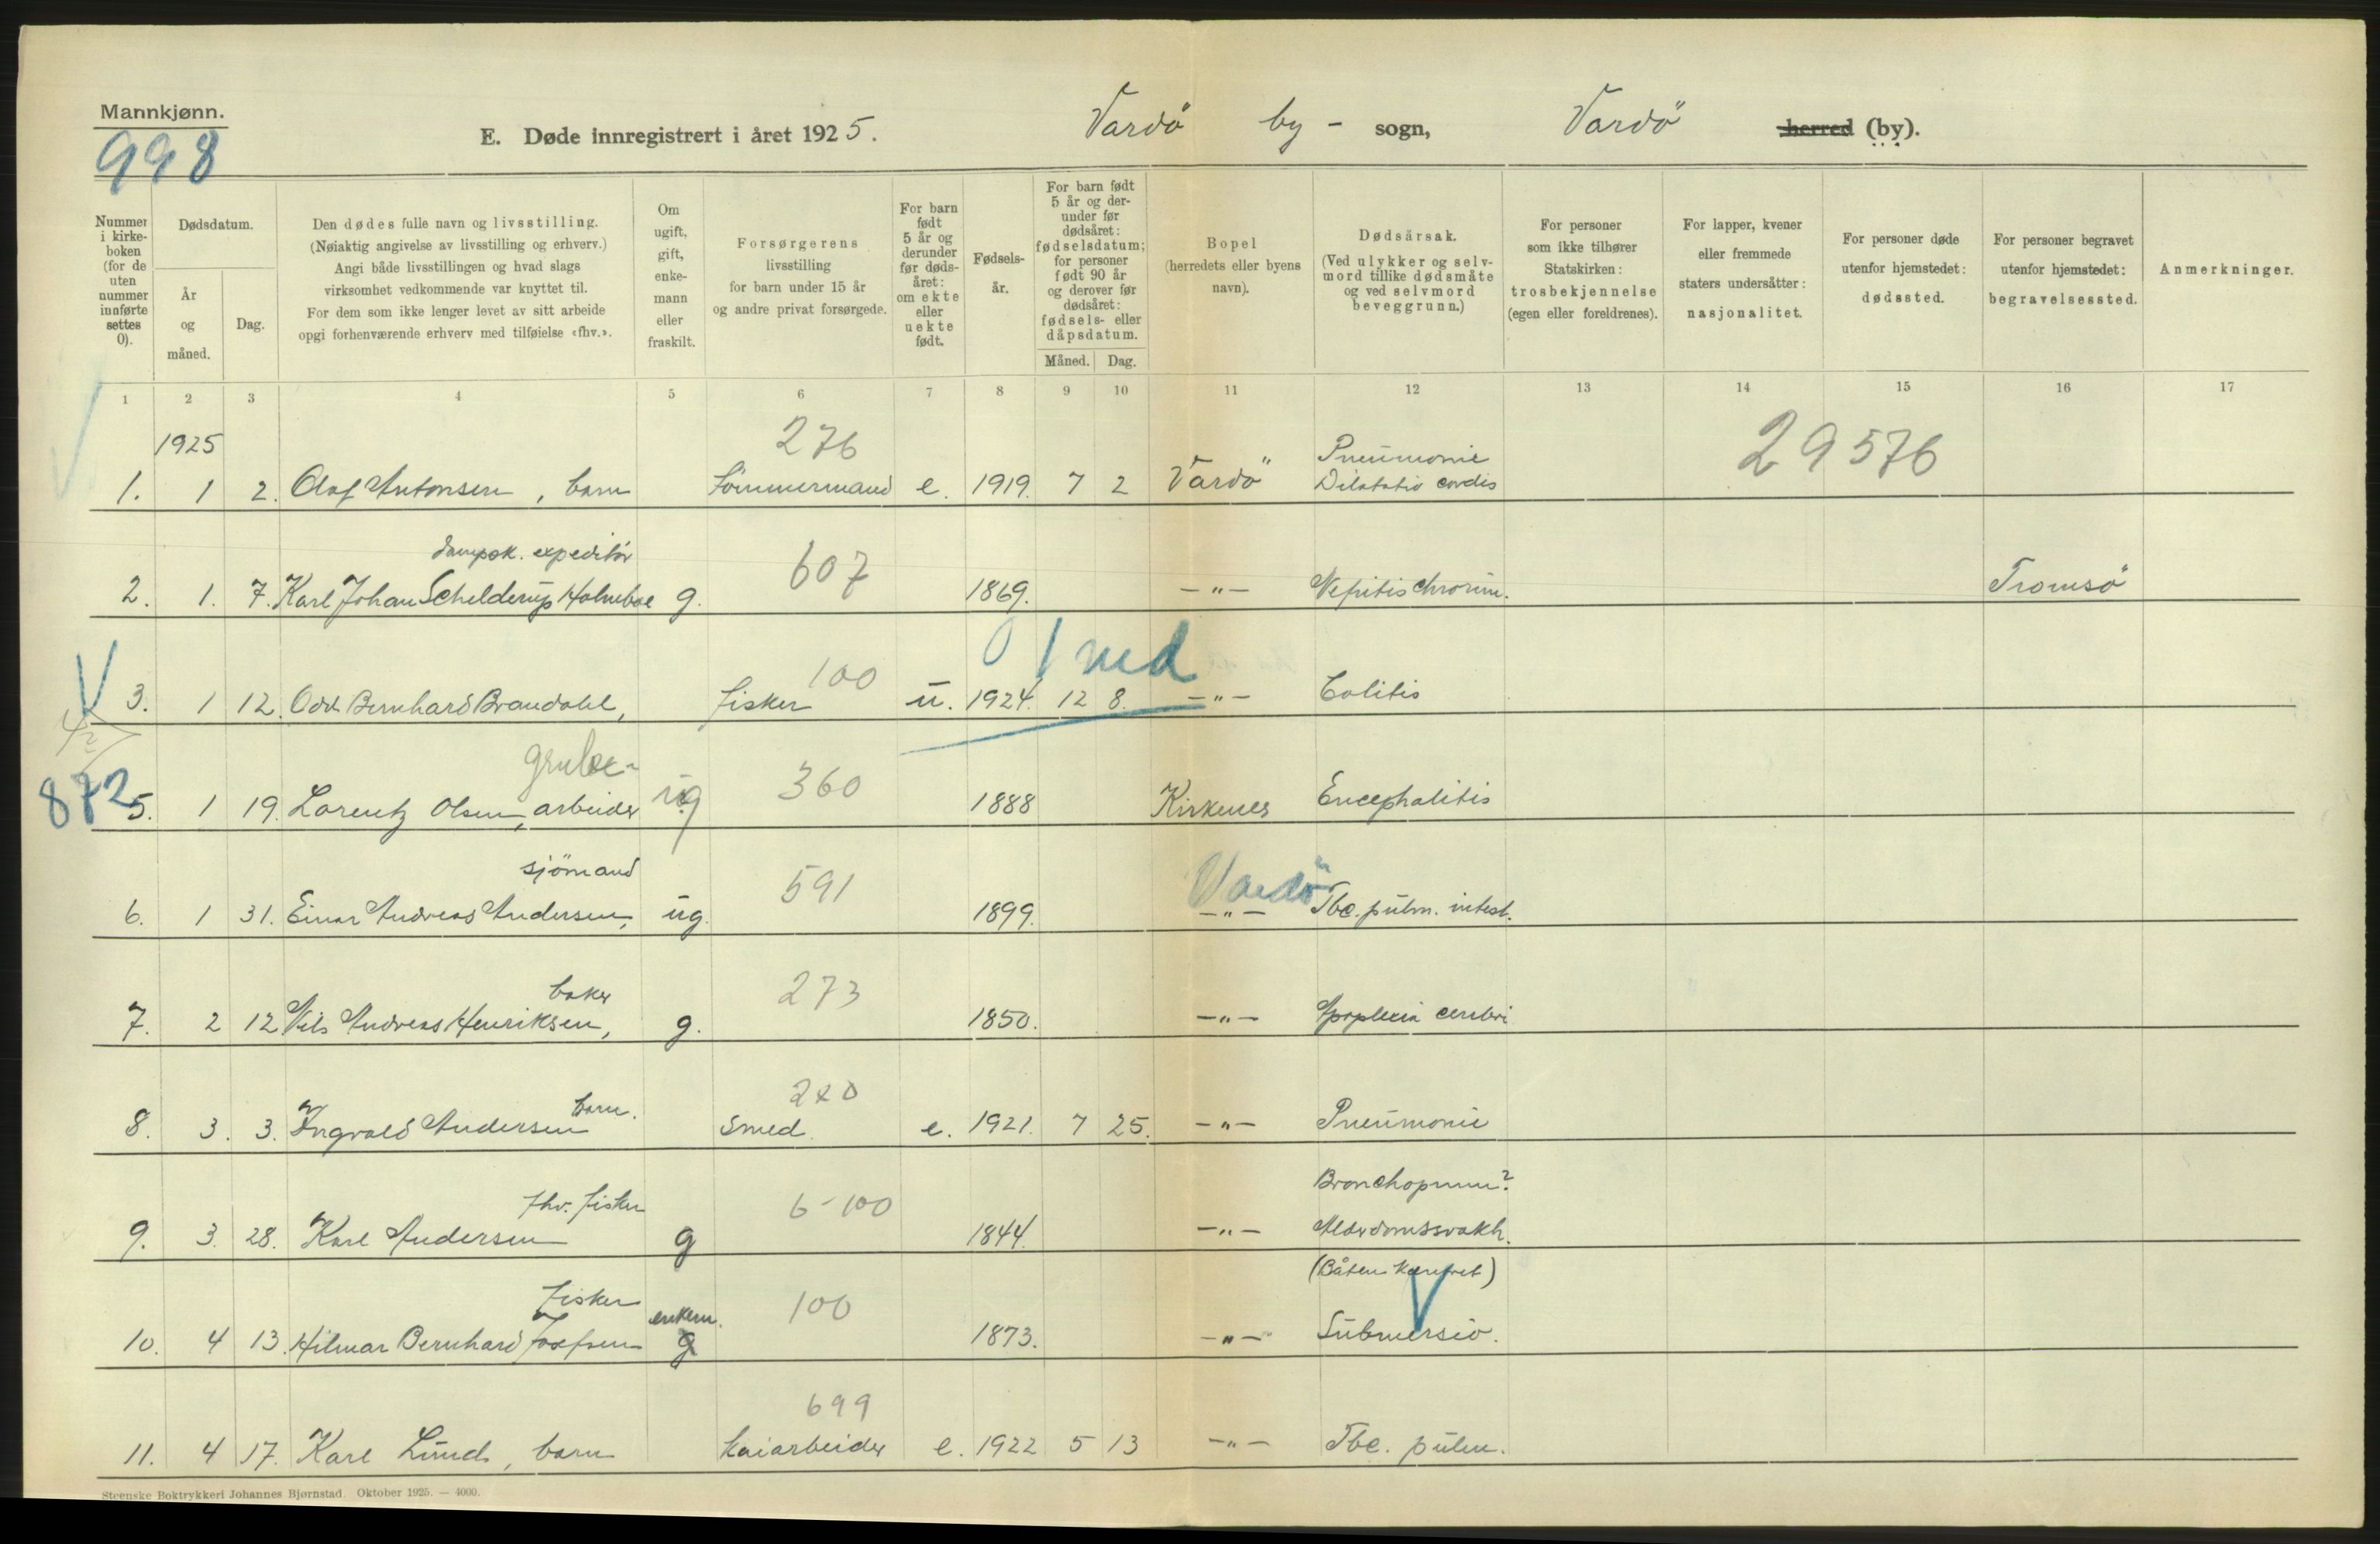 Mannkjønn.
998
E. Døde innregistrert i året 1925. Vardö by - sogn, Vardö herred (by).
Nummer i kirke-boken (for de uten nummer innførte settes 0).
Dødsdatum.
År og måned.
Dag.
Den dødes fulle navn og livsstilling.
(Nøiaktig angivelse av livsstilling og erhverv.)
Angi både livsstillingen og hvad slags
virksomhet vedkommende var knyttet til.
For dem som ikke lenger levet av sitt arbeide
opgi forhenværende erhverv med tilføielse «fhv.».
Om ugift, gift, enke-mann eller fraskilt.
Forsørgerens
livsstilling
for barn under 15 år
og andre privat forsørgede.
For barn født 5 år og derunder før døds-året: om ekte eller uekte født.
Fødsels-år.
For barn født 5 år og der-under før dødsåret: fødselsdatum; for personer født 90 år og derover før dødsåret: fødsels- eller dåpsdatum.
Måned. Dag.
Bopel
(herredets eller byens
navn).
Dødsårsak.
(Ved ulykker og selv-
mord tillike dødsmåte
og ved selvmord
beveggrunn.)
For personer
som ikke tilhører
Statskirken:
trosbekjennelse
(egen eller foreldrenes).
For lapper, kvener
eller fremmede
staters undersåtter:
nasjonalitet.
For personer døde
utenfor hjemstedet:
dødssted.
For personer begravet
utenfor hjemstedet:
begravelsessted.
Anmerkninger.
1 2 3 4 5 6 7 8 9 10 11 12 13 14 15 16 17
1925 276 Pneumonie 29576
1. 1 2. Olaf Antonsen, barn Tömmermand e. 1919. 7 2 Vardö Dilatatio cordis
dampsk. expeditör 607
2. 1. 7. Karl Johan Schelderup Holmboe g. 1869. -"- Nefritis chronic. Tromsö
0 1 md
100
3. 1 12. Odd Bernhard Brandahl, fisker u. 1924. 12 8. -"- Colitis
grube- 360
872 5. 1 19. Lorentz Olsen, arbeider ug 1888 Kirkenes Encephalitis
sjömand 591 Vardö
6. 1 31. Einar Andreas Andersen, ug. 1899. -"- Tbc. pulm. intest.
baker 273
7. 2 12 Nils Andreas Henriksen, g. 1850. -"- Apoplexia cerebri
barn. 220
8. 3. 3. Ingvald Andersen Smed. e. 1921. 7 25. -"- Pneumonie
fhv. fisker 6-100 Bronchopneum?
9. 3. 28. Karl Andersen g 1844. -"- Alderdomssvakh.
fisker enkem. 100 (Båten kantret)
10. 4 13. Hilmar Bernhard Josefsen g 1873. -"- Submersio.
699
11. 4 17. Karl Lund, barn kaiarbeider e. 1922 5 13 -"- Tbc. pulm.
Steenske Boktrykkeri Johannes Bjørnstad. Oktober 1925. — 4000.